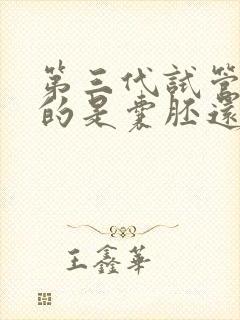 第三代試管
的是囊胚還
王鑫華